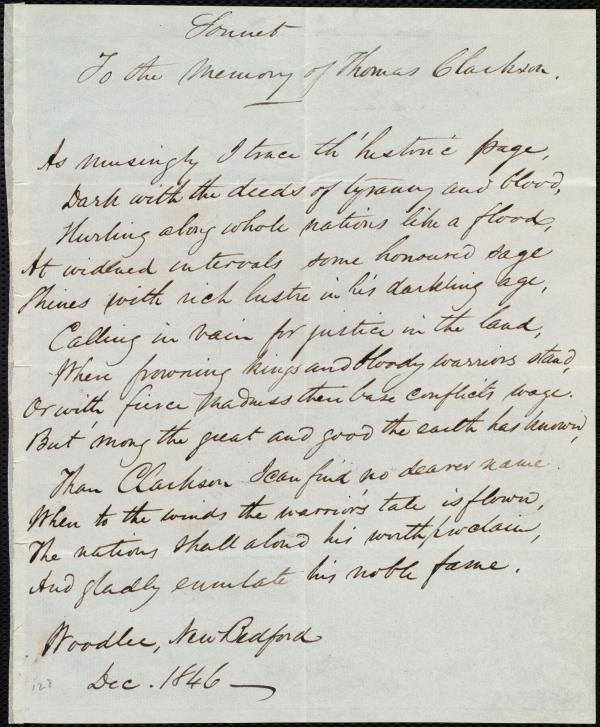 Sonnet
To the Memory of Thomas Clarkson.
As musingly I trace th' historic page,
Dark with the deeds of tyranny and blood,
Hurling along whole nations like a flood,
At widened intervals some honoured sage
Shines with rich lustre in his darkling age,
Calling in vain for justice in the land,
When frowning kings and bloody warriors stand,
Or with fierce madness their base conflicts wage.
But 'mong the great and good the earth has known,
Than Clarkson I can find no dearer name.
When to the winds the warrior's tale is flown,
The nations shall aloud his worth proclaim,
And gladly emulate his noble fame.
Woodlee, New Bedford
Dec. 1846